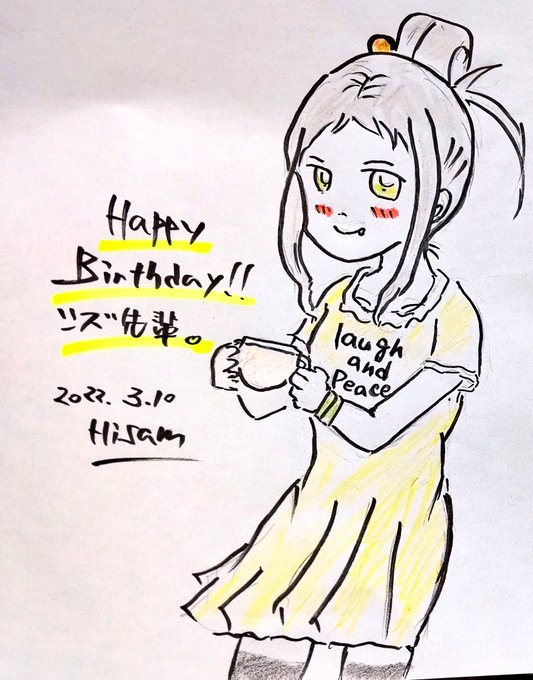 Happy
Birthday!!
リズ先輩。
2022.3.10
Hisam
laugh
and
Peace